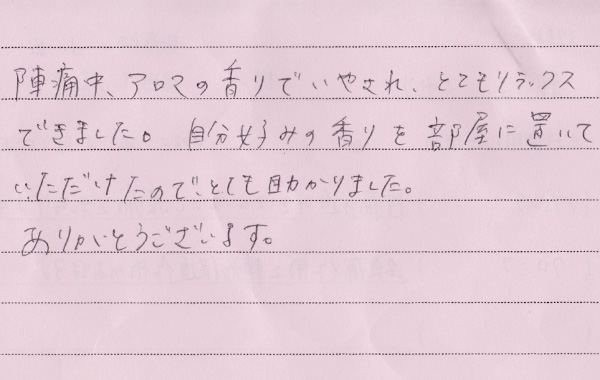 陣痛中、アロマの香りでいやされ、とてもリラックス
できました。自分好みの香りを部屋に置いて
いただけたので、とても助かりました。
ありがとうございます。